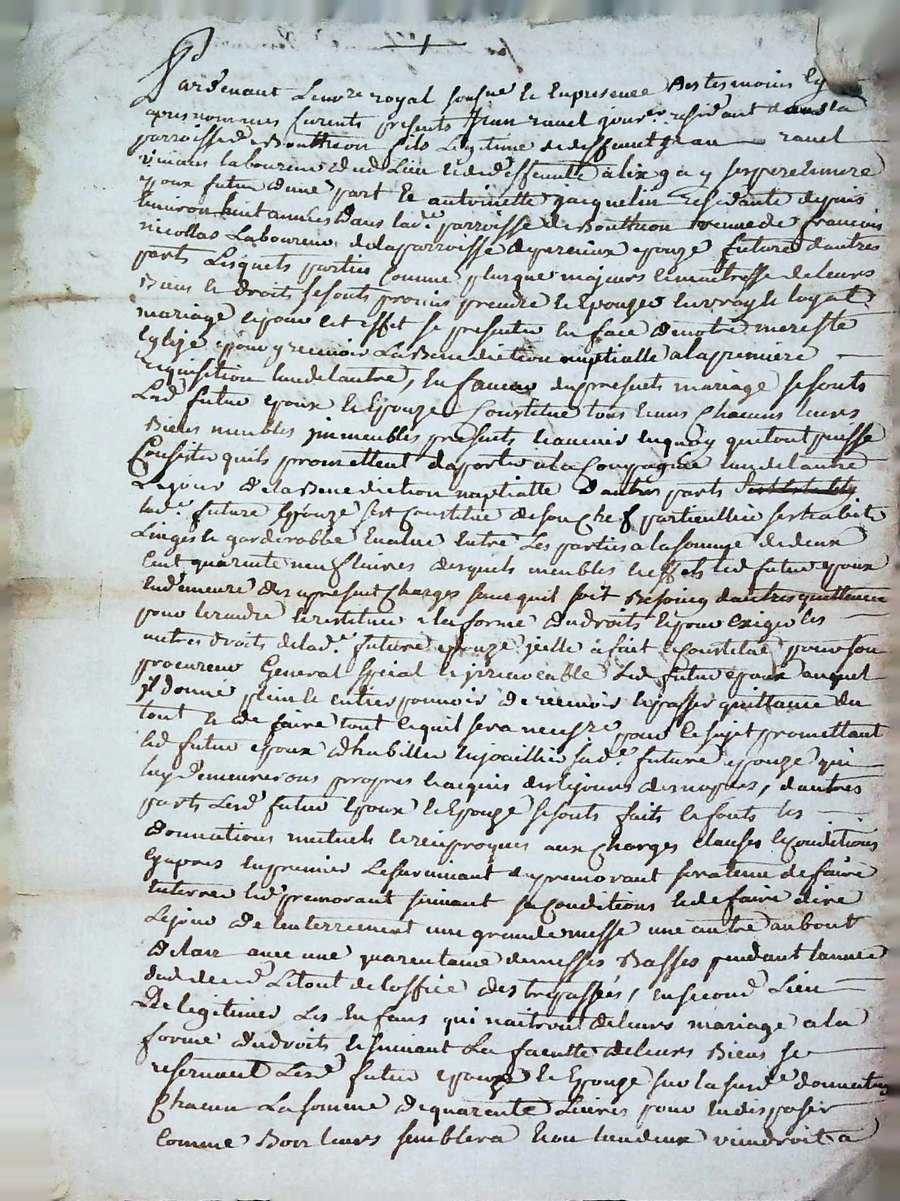 Pardevant Le no.re royal sousné et en presence des tesmoins Cy
apres nommes furents presents Jean ravel jour.er residant dans la
parroisse de Bouthéon fils Legitime de deffunt Jean ravel
vivant laboureur dud. Lieu et de deffunte alix ses pere et mere
epoux futur d'une part et antoinette jacquelin residante depuis
Environ huit années dans lad.e parroisse de Bouthéon veuve de francois
nicollas Laboureur de la parroisse de perieux epouze future d'autres
parts Lesquels parties Comme plusque majeurs et maitresse de leurs
Biens et droits se sonts promis prendre et Epouzer en vray et loyal
mariage et pour cet effet se presenter En face de notre mere ste
Eglize pour y recevoir La Benediction nuptialle a la premiere
requisition l'un de l'autre, En faveur du presents mariage se sonts
Lesd. futur epoux et Epouze Constitué tous Leurs Chacuns leurs
Biens meubles jmmeubles presents et avenir en quoy qu'il tout puisse
Consister qu'ils promettent d'aporter a la Compagnée l'un de l'autre
Le jour de la Benediction nuptialle d'autres parts
lad.e future Epouze s'est Constitué de son Chef particullier ses trabits
Linges et garderobbe Evalué Entre Les parties a la somme de deux
Cent quarente neuf livres desquels meubles et effets led. futur epoux
En demeure des apresent Chargés sans qu'il soit Besoing d'autres quittance
pour les rendre et restituer a la forme du droits et pour exiger les
autres droits de lad.e future epouze jcelle a fait et Constitué pour son
procureur General spécial et jrrevocable Led. futur epoux auquel
jl donne plein et entier pouvoir de recevoir et passer quittance du
tout et de faire tout ce quil sera necess.re pour le sujet promettant
led futur epoux d'habiller enjoailler sad.e future epouze qui
luy demeureront propres et acquis des le jours des nopces, d'autres
parts Lesd. futur Epoux et Epouze se sonts faits et fonts les
donnations mutuels et reciproques aux Charges clauses et Conditions
Cy apres En premier Le survivant du premorant sera tenu de faire
Enterrer led. premorant suivant sa Conditions et de faire dire
Le jour de l'enterrement une grande messe une autre au bout
de l'an avec une quarentaine de messes Basses pendant l'année
dud decé Le tout de l'office des trepassés, En second Lieu
De legitimer Les Enfans qui naitront de leurs mariage a la
forme du droits et suivant La faculté de leurs Biens se
reservant Lesd. futur epoux et Epouze sur la susd.e donnation
Chacun La somme de quarente Livres pour en disposer
Comme Bon leurs semblera Et ou l'un d'eux viendroit a